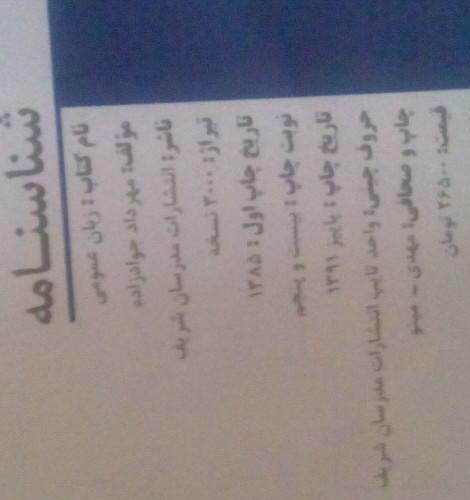 شناسنامه
نام کتاب: زبان عمومی
مؤلف: مهرداد جوادزاده
ناشر: انتشارات مدرسان شریف
تیراژ: ۳۰۰۰ نسخه
تاریخ چاپ اول: ۱۳۸۵
نوبت چاپ: بیست و پنجم
تاریخ چاپ: پاییز ۱۳۹۱
حروف چینی: واحد تایپ انتشارات مدرسان شریف
چاپ و صحافی: مهدی - مینو
قیمت: ۲۶۵۰۰ تومان